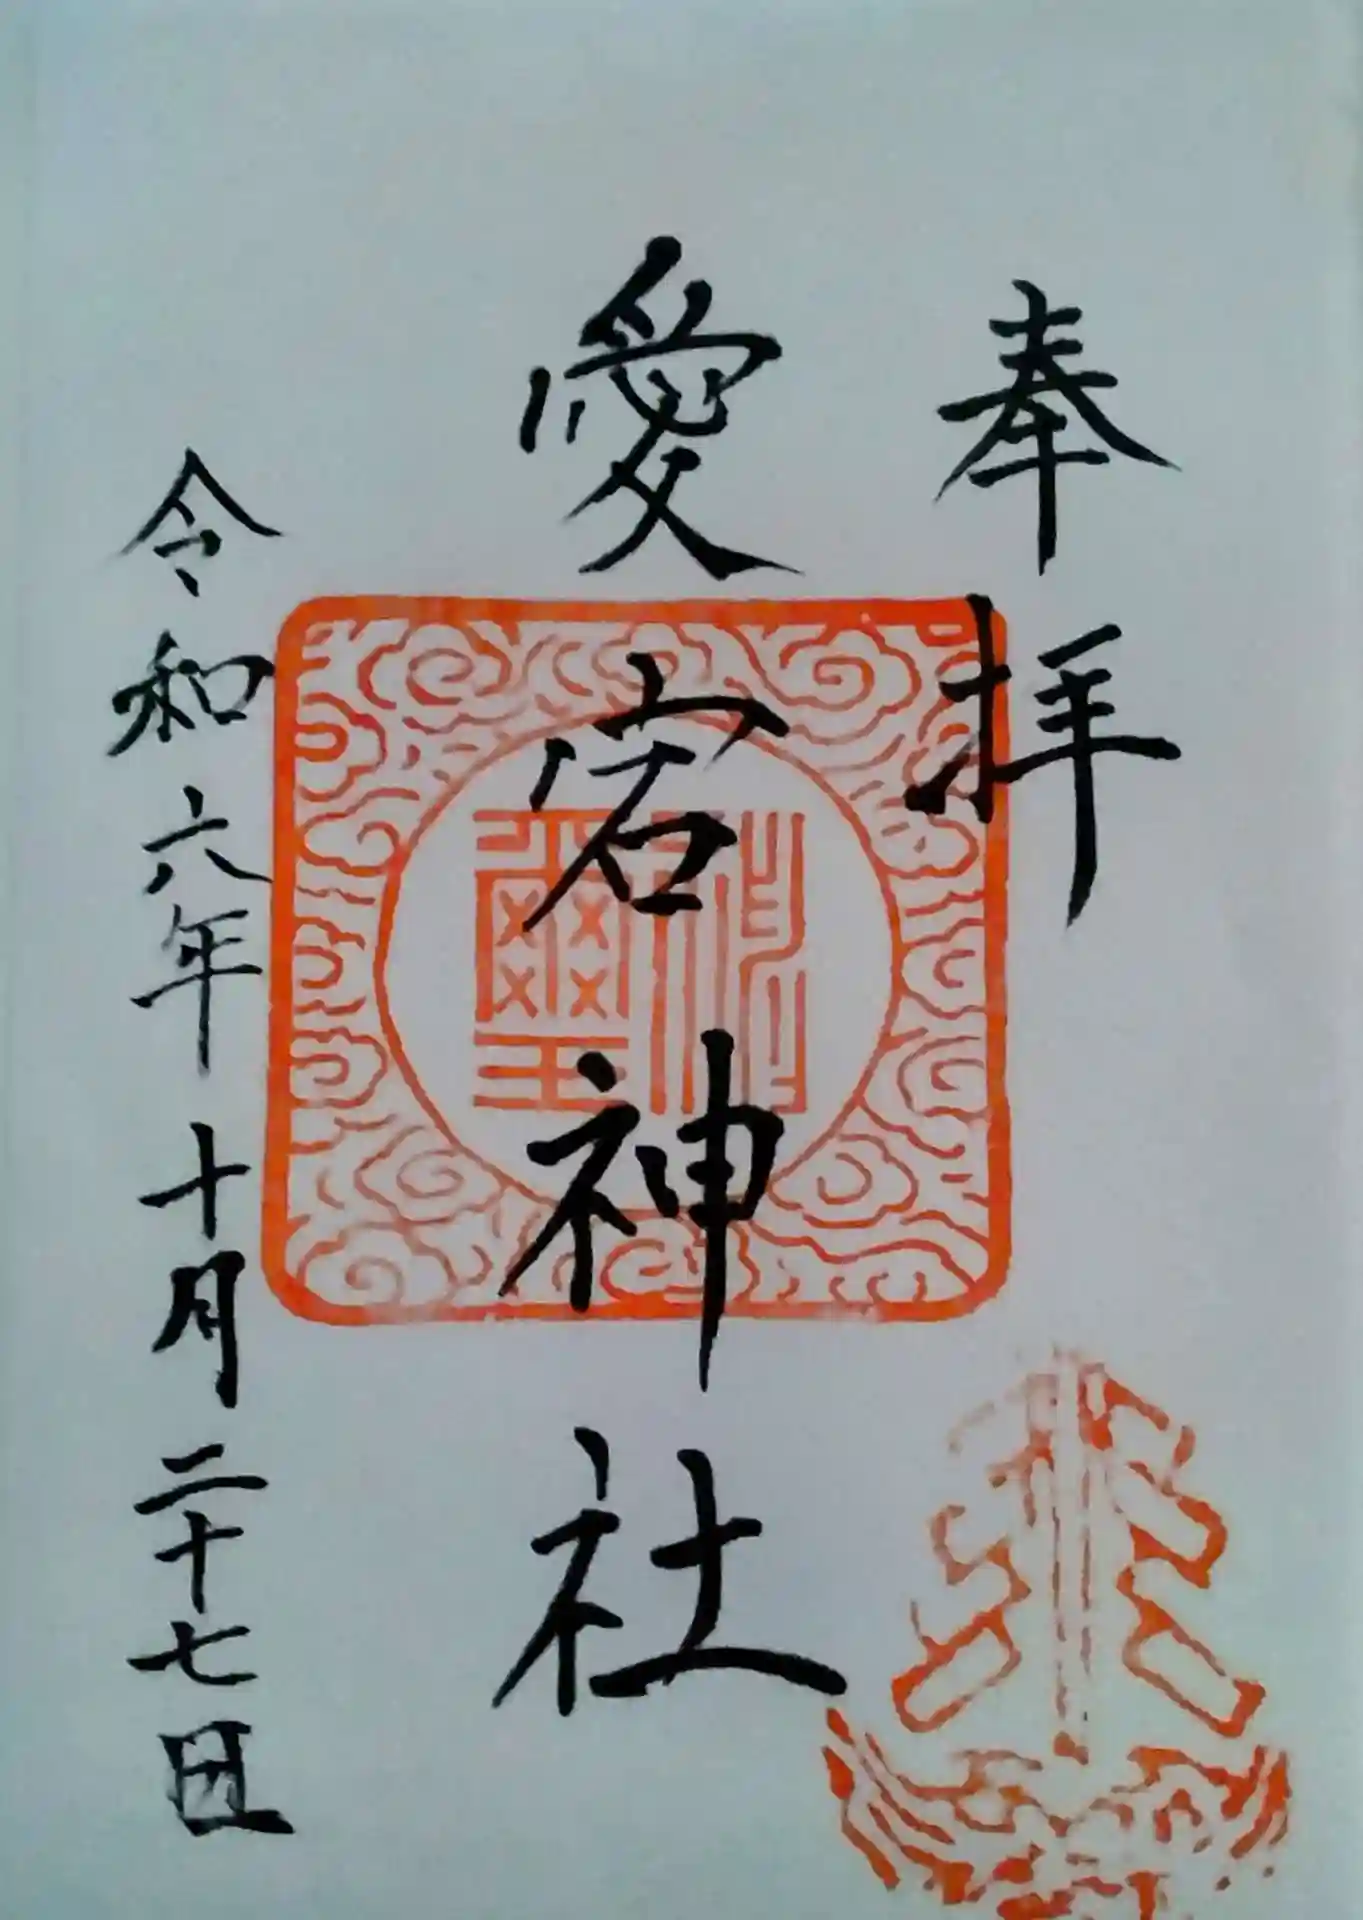 奉拝
愛宕神社
神璽
令和六年十月二十七日